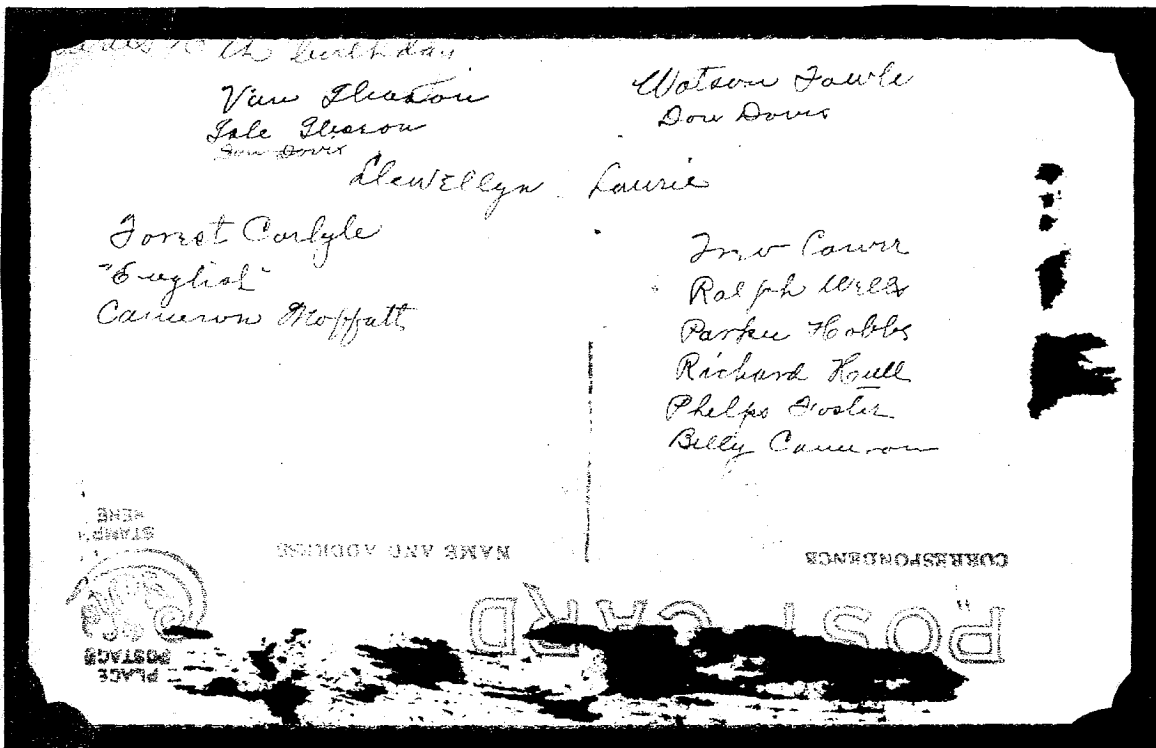 10th birthday
Van Gleason
Gale Gleason
Don Davis
Watson Fowle
Don Davis
Llewellyn Laurie
Forest Carlyle
"English"
Cameron Moffatt
Ralph Wells
Parker Hobbs
Richard Hull
Phelps Foster
Billy Cameron
CORRESPONDENCE
NAME AND ADDRESS
POST CARD
PLACE
POSTAGE
STAMP
HERE